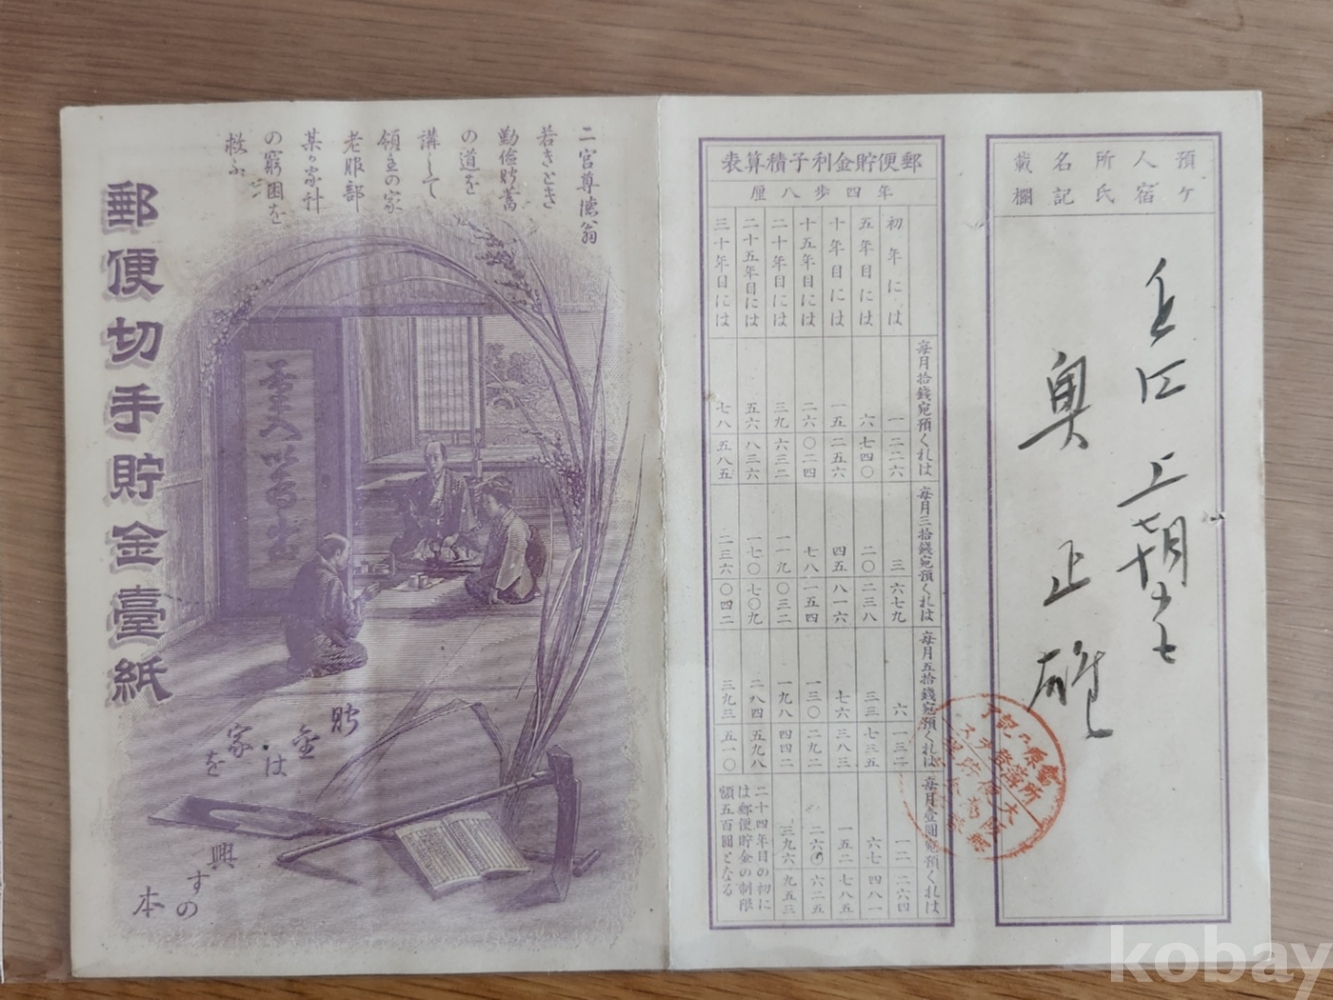 預ケ人宿所氏名記載欄
奥正雄
郵便貯金利子積算表
年四歩八厘
初年には
五年目には
十年目には
十五年目には
二十年目には
二十五年目には
三十年目には
毎月拾錢宛預くれは
一二二六
六七四〇
一五二五六
二六〇二四
三九六三二
五六八三六
七八五八五
毎月三拾錢宛預くれは
三六七九
二〇二三八
四五八一六
七八一五四
一一九〇三二
一七〇七〇九
二三六〇四二
毎月五拾錢宛預くれは
六一三二
三三七三五
七六三八三
一三〇二九二
一九八四四二
二八四五九八
三九三五一〇
毎月壹圓宛預くれは
一二二六四
六七四八一
一五二七八五
二六〇六二五
三九六九五三
二十四年目の初に
は郵便貯金の制限
額五百圓となる
二宮尊徳翁
若きとき
勤儉貯蓄
の道を
講して
領主の家
老服部
某の家計
の窮困を
救ふ
郵便切手貯金臺紙
貯金は家を興すの本
kobay